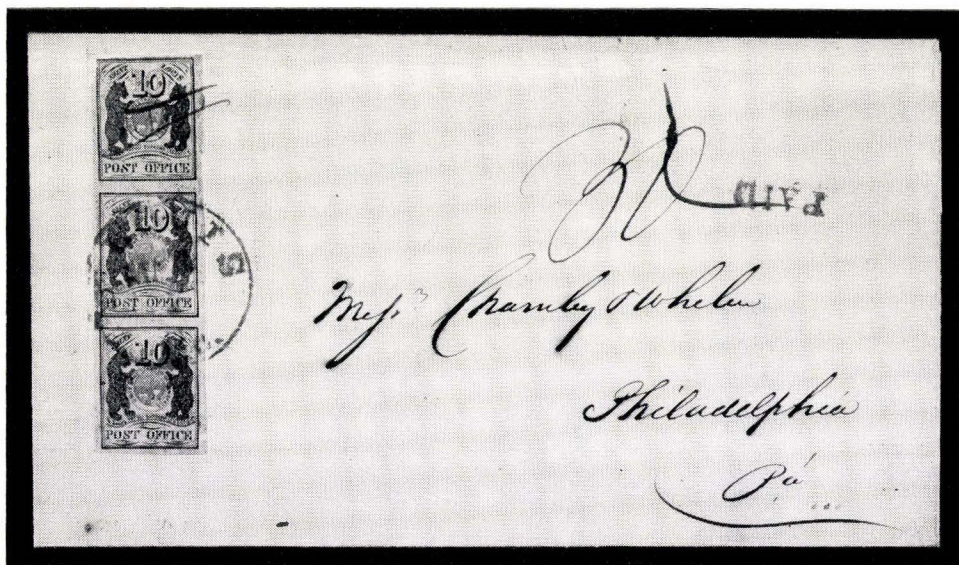 10
POST OFFICE
10
POST OFFICE
10
POST OFFICE
PAID
Messrs Charnley & Whelen
Philadelphia
Pa